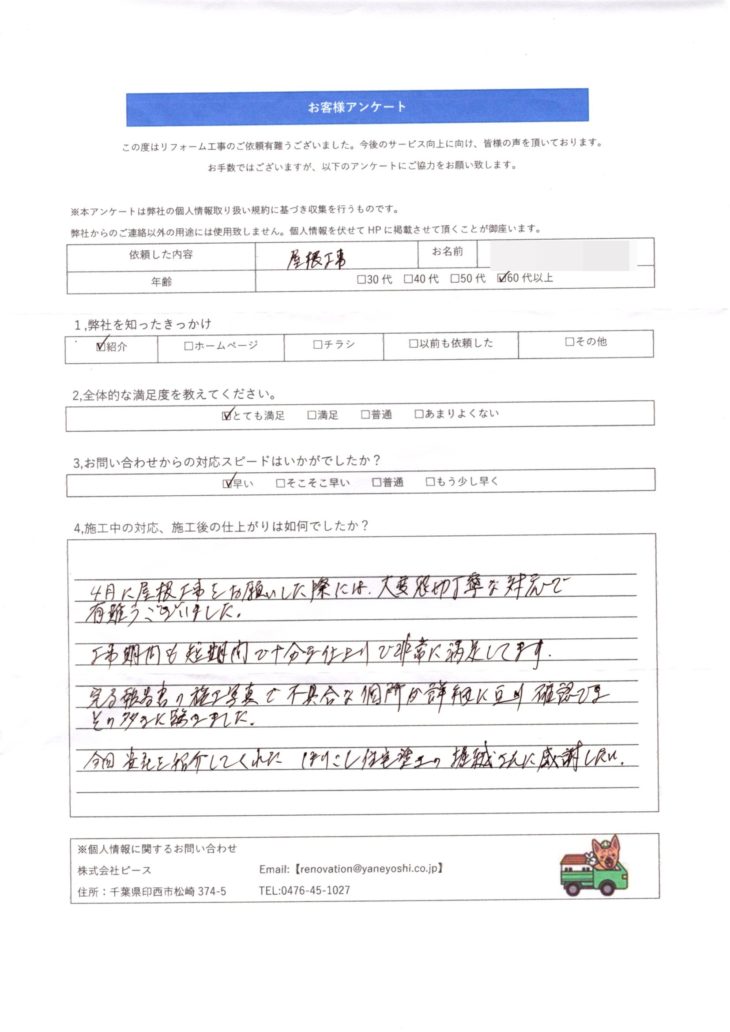 お客様アンケート
この度はリフォーム工事のご依頼有難うございました。今後のサービス向上に向け、皆様の声を頂いております。
お手数ではございますが、以下のアンケートにご協力をお願い致します。
※本アンケートは弊社の個人情報取り扱い規約に基づき収集を行うものです。
弊社からのご連絡以外の用途には使用致しません。個人情報を伏せて HP に掲載させて頂くことが御座います。
依頼した内容 屋根工事 お名前
年齢 □30 代 □40 代 □50 代 ☑60 代以上
1,弊社を知ったきっかけ
☑紹介 □ホームページ □チラシ □以前も依頼した □その他
2,全体的な満足度を教えてください。
☑とても満足 □満足 □普通 □あまりよくない
3,お問い合わせからの対応スピードはいかがでしたか？
☑早い □そこそこ早い □普通 □もう少し早く
4,施工中の対応、施工後の仕上がりは如何でしたか？
4月に屋根工事をお願いした際には、大変親切丁寧な対応で
有難うございました。
工事期間も短期間で十分な仕上りで非常に満足してます。
完了報告書の施工写真で不具合な個所が詳細に亘り確認でき
ました。
今回 貴社を紹介してくれた ほりこし住宅塗工の 堀越さんに感謝したい。
※個人情報に関するお問い合わせ
株式会社ピース Email:【renovation@yaneyoshi.co.jp】
住所：千葉県印西市松崎 374-5 TEL:0476-45-1027